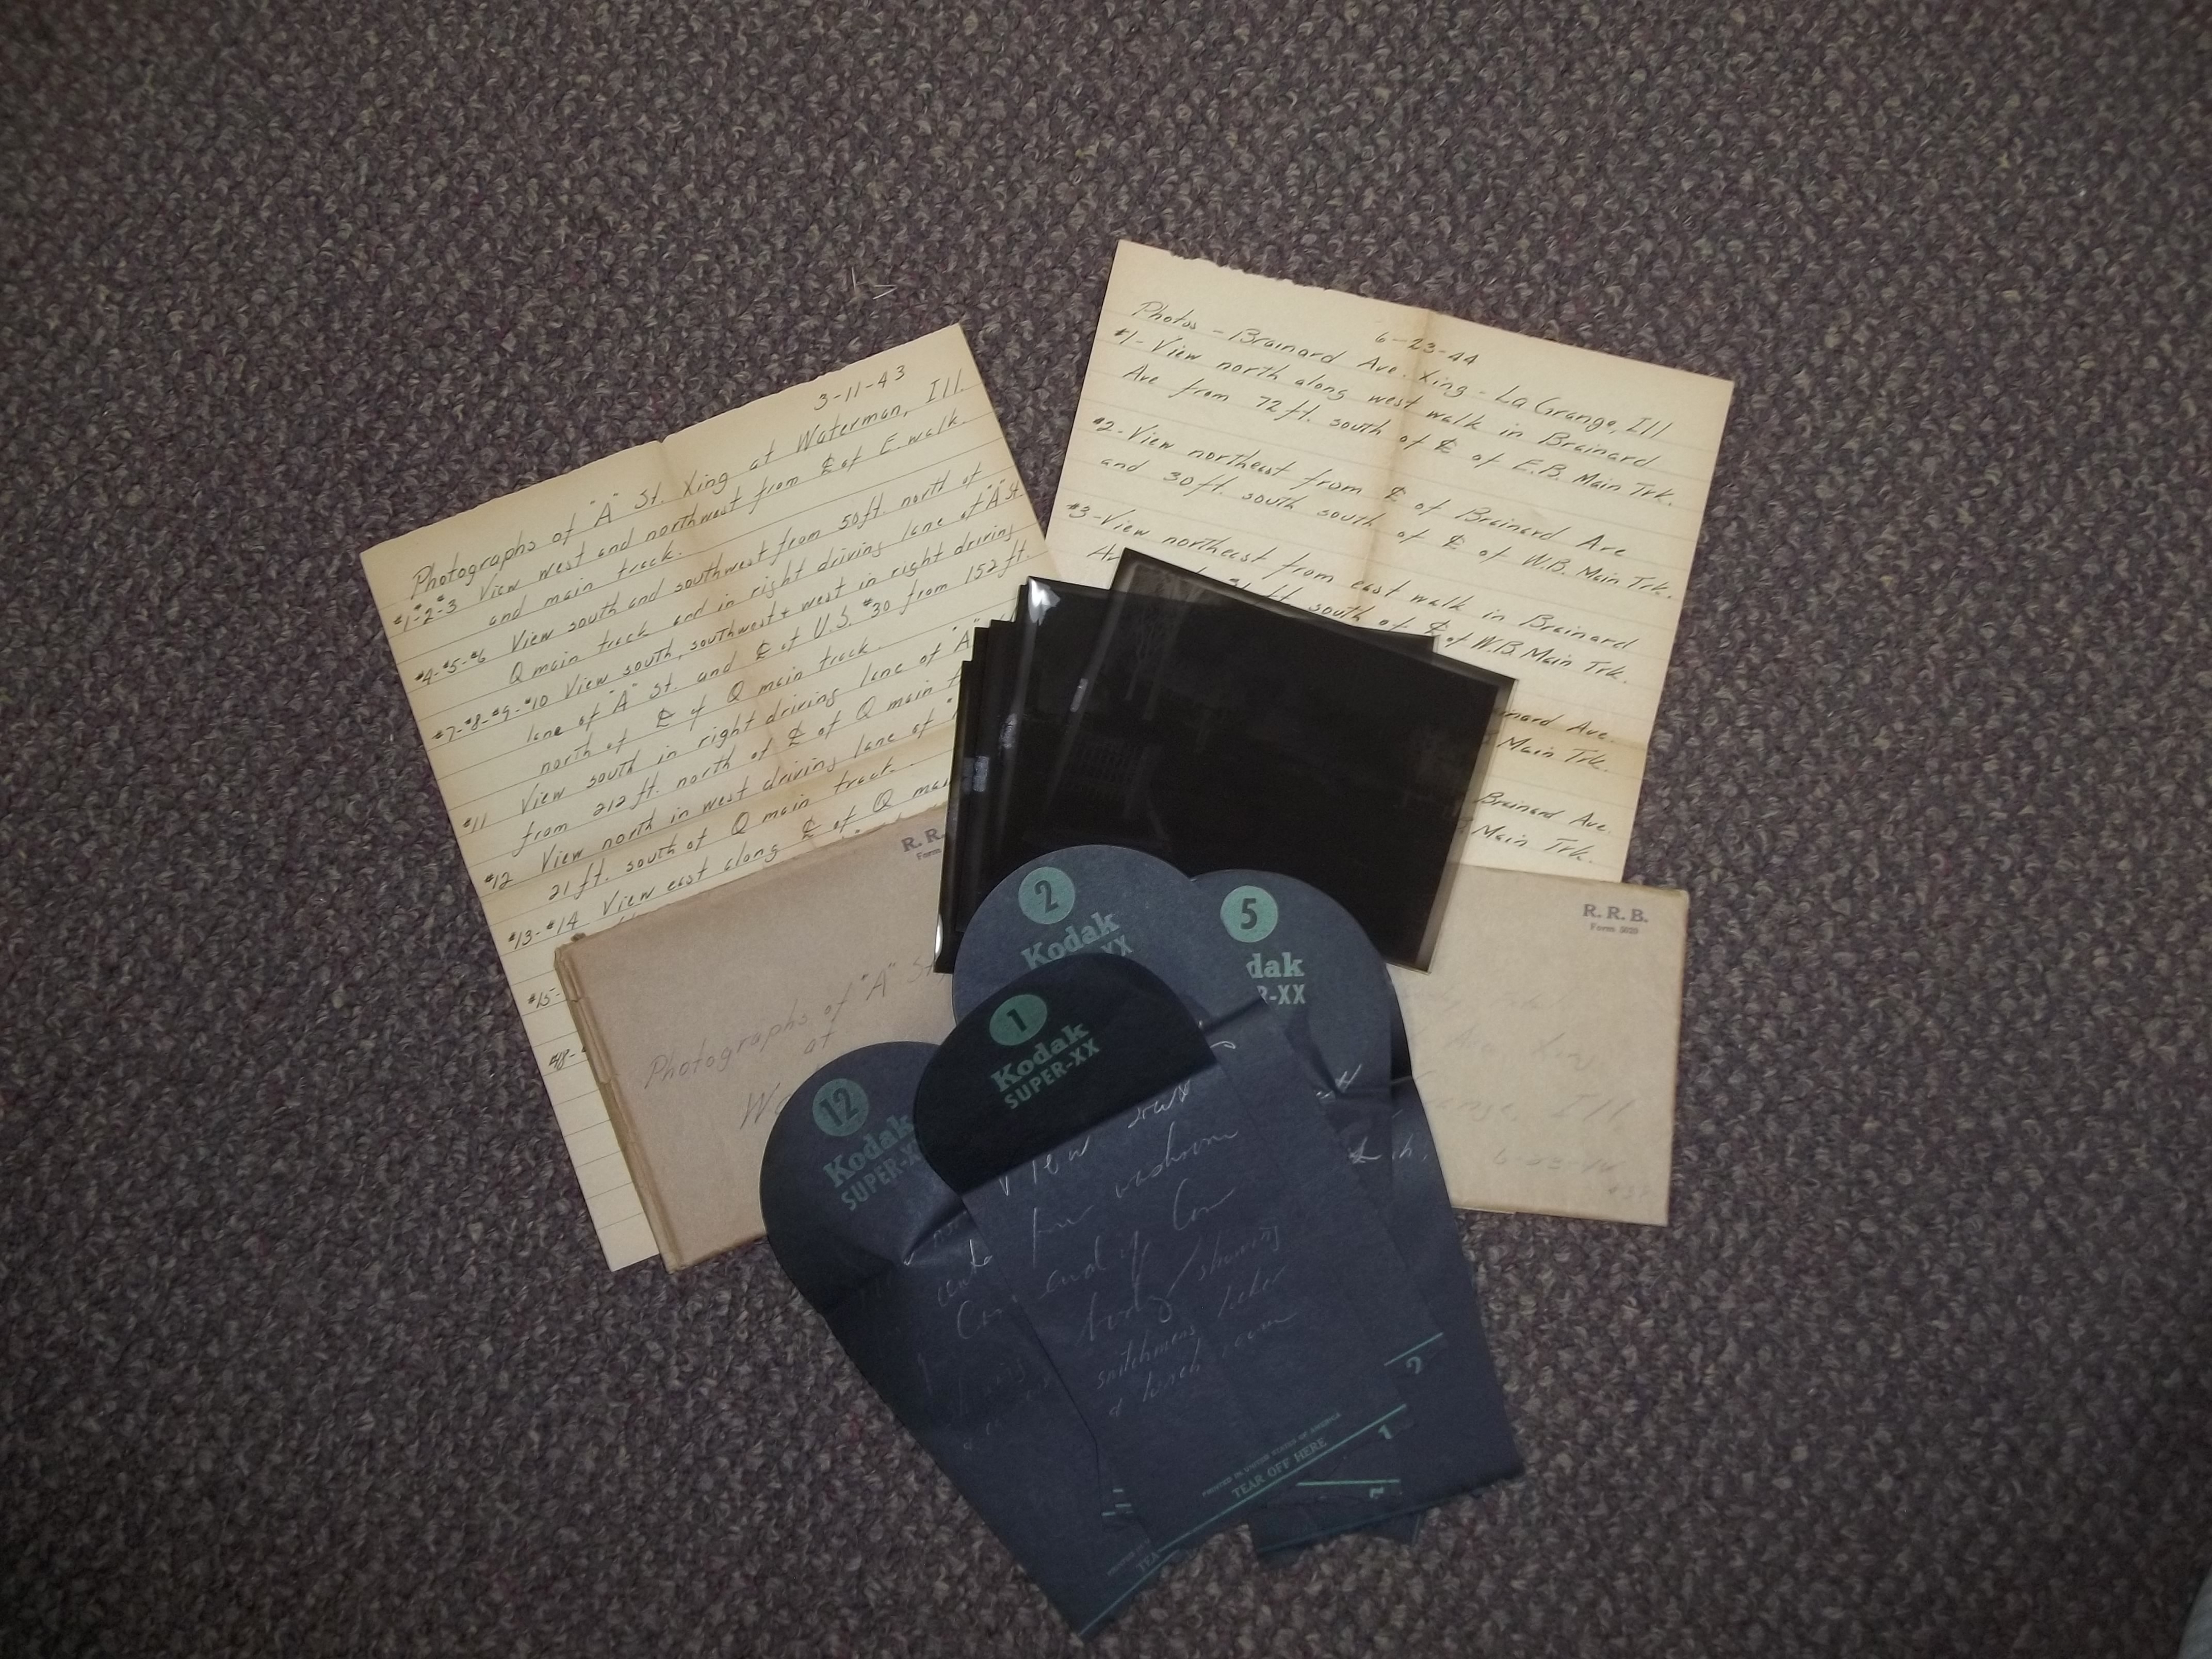 3-11-43
Photographs of "A" St. Xing at Waterman, Ill.
#1-#2-#3 View west and northwest from ℄ of E. walk.
and main track.
#4-#5-#6 View south and southwest from 50 ft. north of
Q main track and in right driving lane of "A" St.
#7-#8-#9-#10 View south, southwest & west in right driving
lane of "A" St. and ℄ of U.S. #30 from 152 ft.
north of ℄ of Q main track.
#11 View south in right driving lane of "A"
from 212 ft. north of ℄ of Q main
#12 View north in west driving lane of
21 ft. south of Q main track.
#13-#14 View east along ℄ of Q
#15-
#18-
6-23-44
Photos - Brainard Ave. Xing - La Grange, Ill
#1- View north along west walk in Brainard
Ave from 72 ft. south of ℄ of E.B. Main Trk.
#2- View northeast from ℄ of Brainard Ave
and 30 ft. south south of ℄ of W.B. Main Trk.
#3- View northeast from east walk in Brainard
south of ℄ of W.B. Main Trk.
Ave.
Main Trk.
Brainard Ave.
Main Trk.
R.R.
Form
Photographs of "A" St
at
R. R. B.
Form
Xing
Ill
2
Kodak
XX
5
dak
R-XX
1
Kodak
SUPER-XX
View
from washroom
end of
body showing
switchmens
& lunch room
PRINTED IN UNITED STATES OF AMERICA
TEAR OFF HERE
1
2
12
Kodak
SUPER-X
TEA